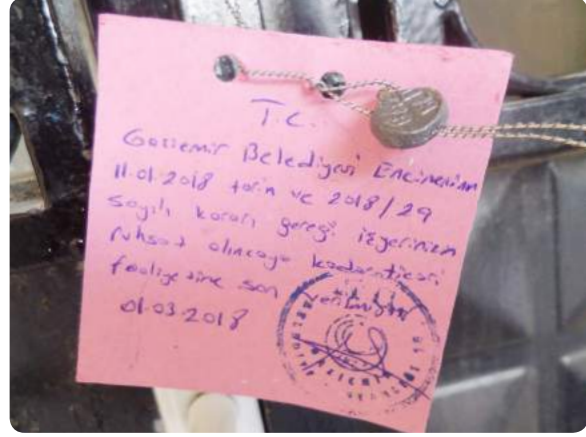 T.C.
Gaziemir Belediyesi Encümeninin
11.01.2018 tarih ve 2018/29
Sayılı kararı gereği işyerinizin
ruhsat alıncaya kadar ticari
faaliyetine son verilmiştir
01.03.2018